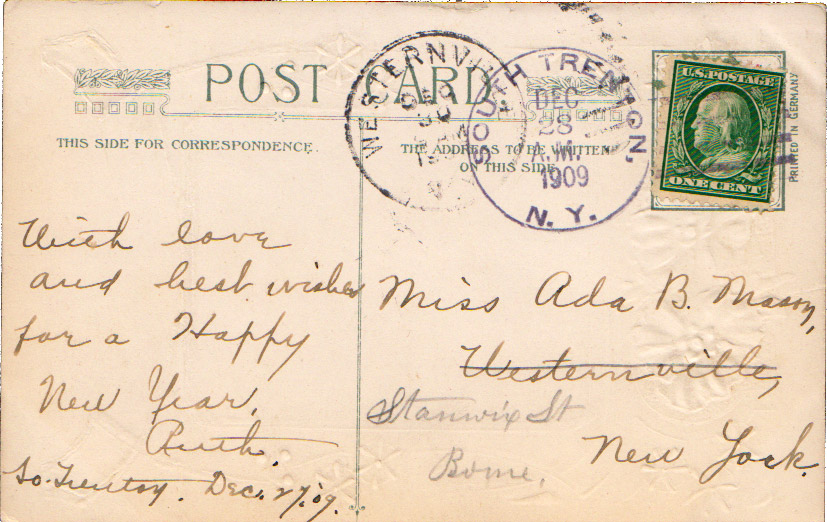 POST CARD
THIS SIDE FOR CORRESPONDENCE.
THE ADDRESS TO BE WRITTEN
ON THIS SIDE
WESTERNVILLE
DEC
30
SOUTH TRENTON,
DEC
28
A.M.
1909
N. Y.
U.S. POSTAGE
ONE CENT
PRINTED IN GERMANY
With love
and best wishes
for a Happy
New Year.
Ruth.
So. Trenton. Dec. 27, '09.
Miss Ada B. Mason,
Westernville,
Stanwix St
Rome.
New York.